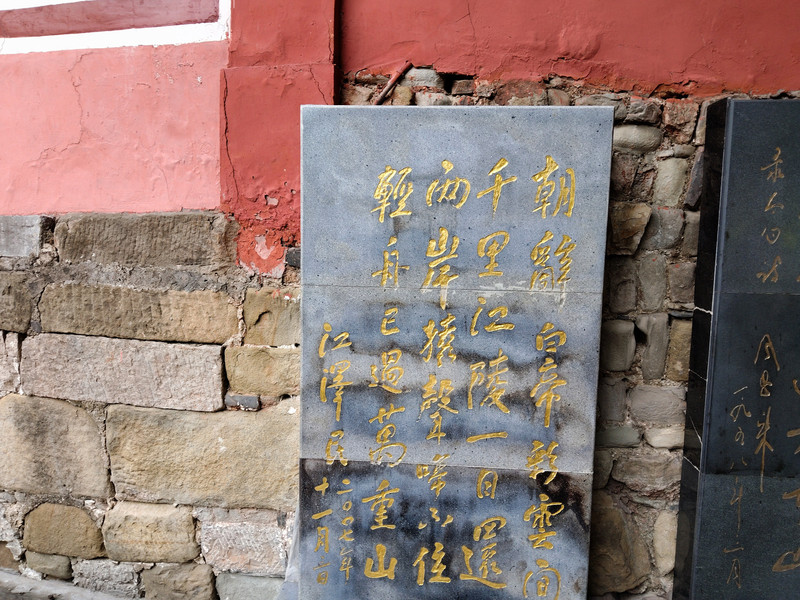 录太白诗
周恩来
一九五八年
朝辭白帝彩雲間
千里江陵一日還
兩岸猿聲啼不住
輕舟已過萬重山
江澤民
二〇〇七年
十一月一日